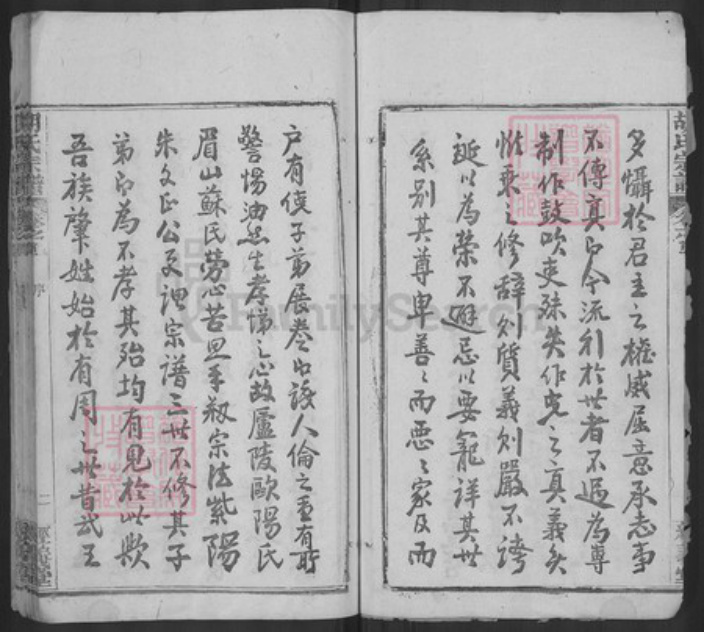 多懾於君主之權威屈意承志事
不傳真即今流行於世者不過為專
制作鼓吹吏殊失作史之真義矣
惟乘之修辭則質義則嚴不誇
誕以為榮不避忌以要寵詳其世
系別其尊卑善善而惡惡家及而
戶有使子弟展卷即談人倫之重有所
警惕油然生孝悌之心故廬陵歐陽氏
眉山蘇氏勞心苦思手叙宗法紫陽
朱文正公更謂宗譜三世不修其子
弟即為不孝其殆均有見於此歟
吾族肇姓始於有周之世昔武王
胡氏宗譜
FamilySearch